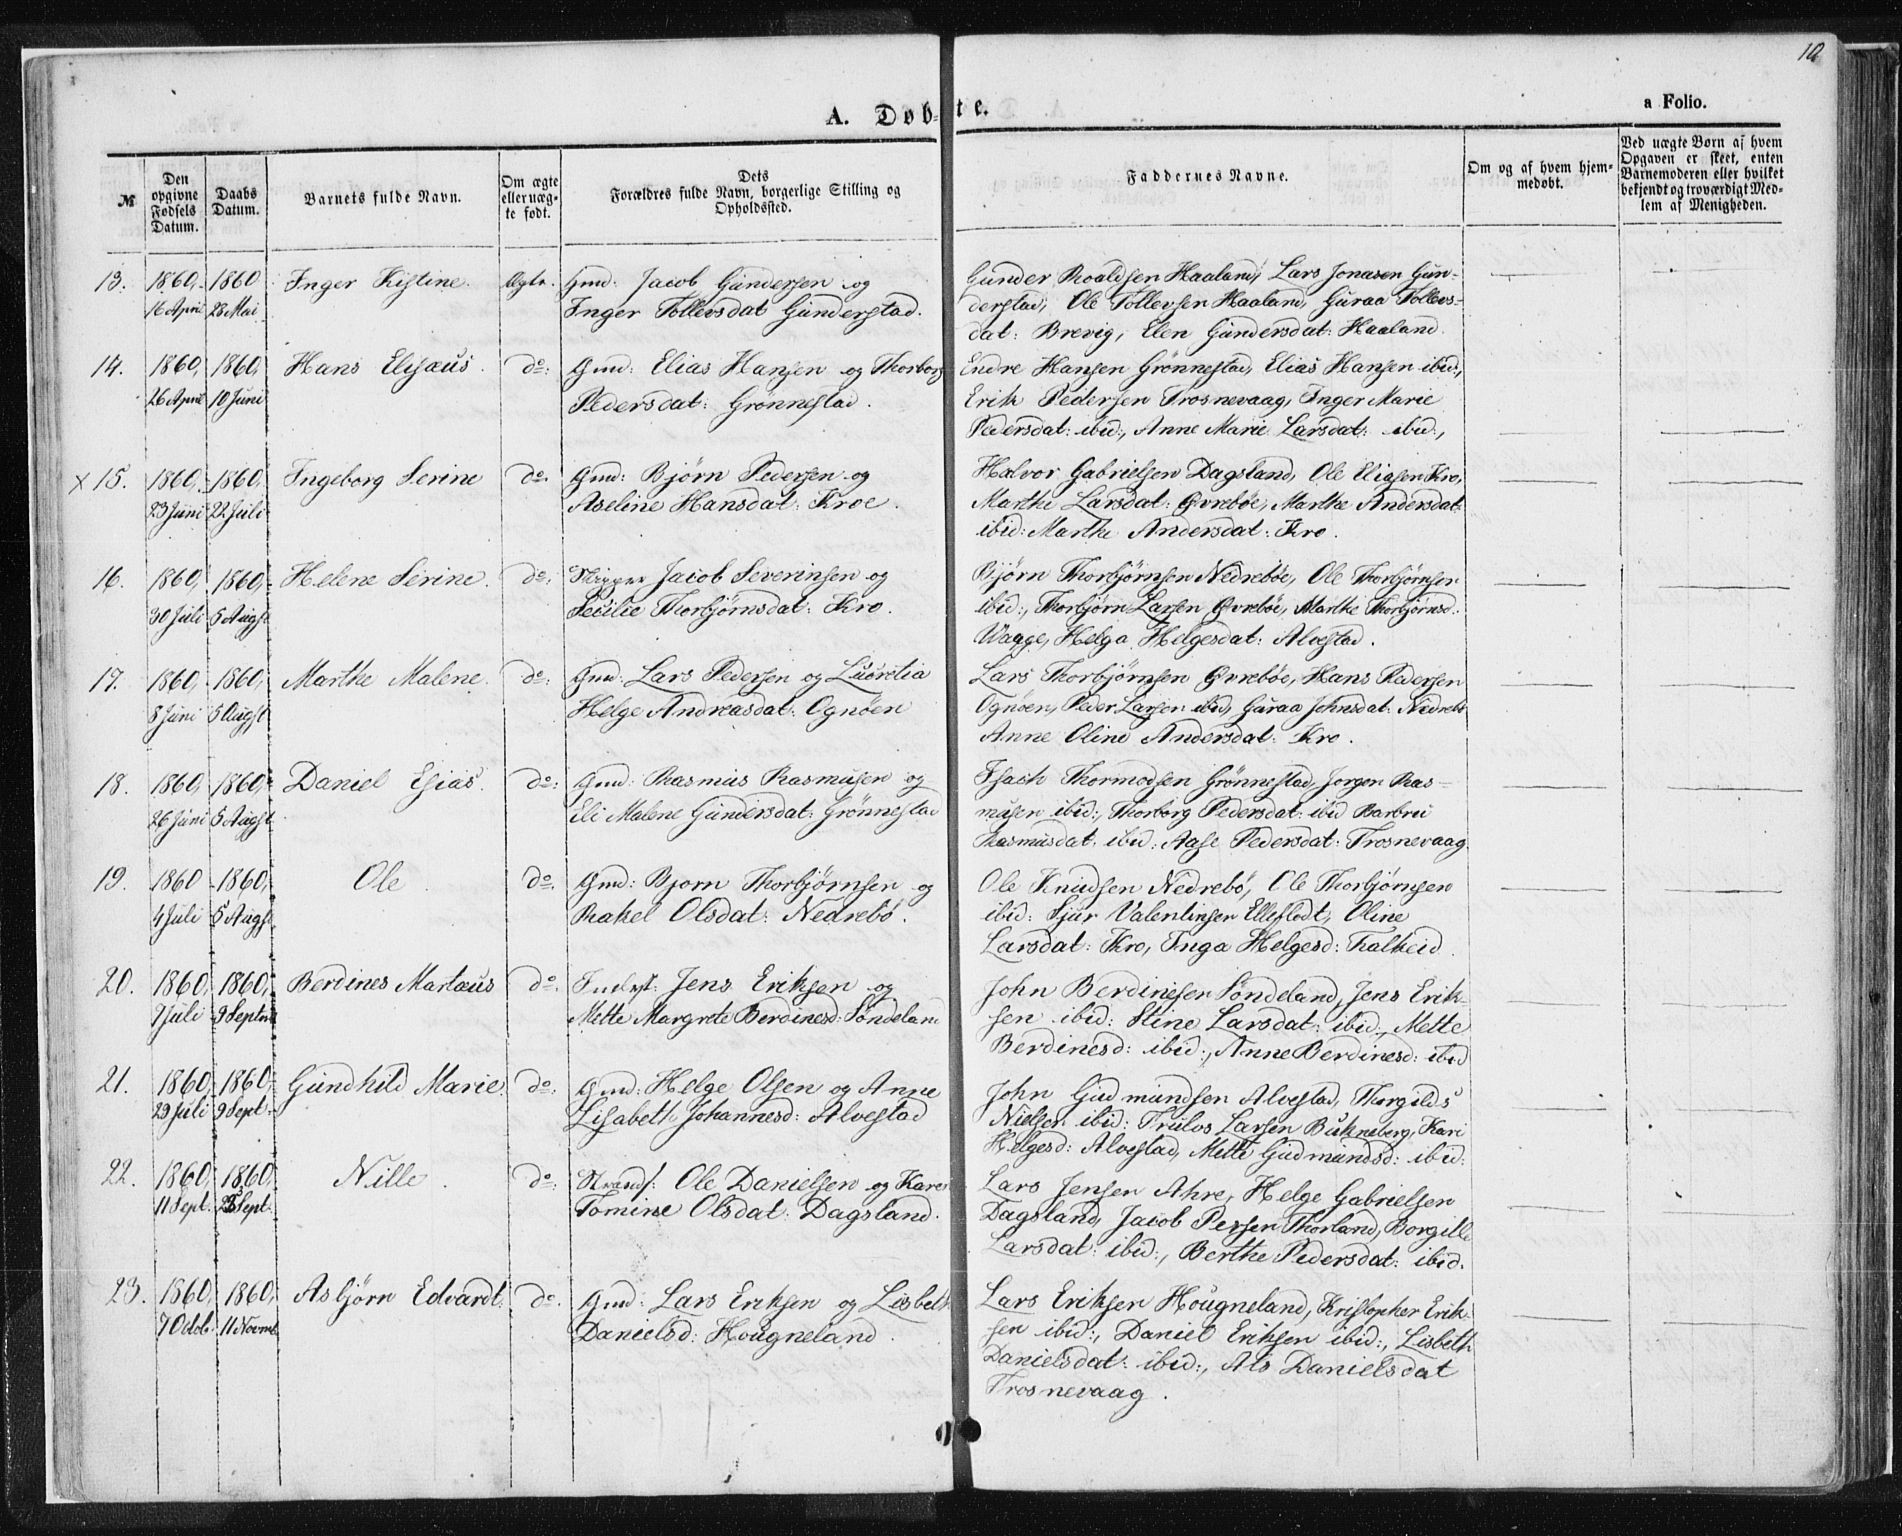 10
A. Døb-te.
a Folio.
№
Den opgivne Fødsels Datum.
Daabs Datum.
Barnets fulde Navn.
Om ægte eller uægte født.
Dets Forældres fulde Navn, borgerlige Stilling og Opholdssted.
Faddernes Navne.
Om og af hvem hjemmedøbt.
Ved uægte Børn af hvem Opgaven er skeet, enten Barnemoderen eller hvilket bekjendt og troværdigt Medlem af Menigheden.
13. 1860, 16 April 1860 28 Mai Inger Kistine. Ægte.
Gmd: Jacob Gundersen og
Inger Tollevsdat Gunderstad.
Gunder Roaldsen Haaland, Lars Jonasen Gun-
derstad, Ole Tollevsen Haaland, Guraa Tollevs-
dat: Brevig, Elen Gundersdat: Haaland.
14. 1860, 26 April 1860, 10 Juni Hans Elisæus. do:
Gmd: Elias Hansen og Thorborg
Pedersdat: Grönnestad.
Endre Hansen Grönnestad, Elias Hansen ibid:,
Erik Pedersen Trosnevaag, Inger Marie
Pedersdat: ibid:, Anne Marie Larsdat: ibid:,
x 15. 1860, 23 Juni 1860, 22 Juli Ingeborg Serine do.
Gmd: Bjørn Pedersen og
Aseline Hansdat: Kroe.
Halvor Gabrielsen Dagsland, Ole Eliasen Kro,
Marthe Larsdat: Øvrebøe, Marthe Andersdat:
ibid: Marthe Andersdat: Kro.
16. 1860, 30 Juli 1860, 5 Augst Helene Serine. do:
Skipper Jacob Severinsen og
Secilie Thorbjørnsdat: Kro.
Bjørn Thorbjørnsen Nedrebøe, Ole Thorbjørnsen
ibid:, Thorbjørn Larsen Øvrebøe, Marthe Thorbjørnsd:
Wagge, Helga Helgesdat: Alvestad.
17. 1860, 8 Juni 1860, 5 Augst Marthe Malene. do:
Gmd: Lars Pedersen og Lucretia
Helge Andreasdat: Ognöen
Lars Thorbjørnsen Øvrebøe, Hans Pedersen
Ognöen, Peder Larsen ibid, Guraa Johnsdat: Nedrebö
Anne Oline Andersdat: Kro.
18. 1860, 26 Juni 1860, 5 Augst Daniel Esias. do:
Gmd: Rasmus Rasmusen og
Eli Malene Gundersdat: Grönnestad
Isach Thormodsen Grönnestad, Jorgen Ras-
musen ibid:, Thorborg Pedersdat: ibid Barbrei
Rasmusdat. ibid: Aase Pedersdat: Trosnevaag.
19. 1860 4 Juli 1860, 5 Augst Ole. do.
Gmd: Bjorn Thorbjørnsen og
Rakel Olsdat: Nedrebö.
Ole Knudsen Nedrebö, Ole Thorbjørnsen
ibid: Sjur Valentinsen Elleflodt, Oline
Larsdat: Kro, Inga Helgesd: Falkeid.
20. 1860, 7 Juli 1860, 9 Septr Berdines Martæus do.
Inderst: Jens Eriksen og
Mette Margrete Berdinesd: Söndeland
John Berdinesen Söndeland, Jens Erik-
sen ibid: Stine Larsdat: ibid:, Mette
Berdinesd: ibid:, Anne Berdinesd: ibid
21. 1860, 29 Juli 1860, 9 Sept. Gundhild Marie. do:
Gmd: Helge Olsen og Anne
Lisabeth Johannesd: Alvestad
John Gudmundsen Alvestad, Thorgilds
Nielsen ibid: Trulos Larsen Bukneberg, Kari
Helgesd: Alvestad, Mette Gudmundsd: ibid:
22. 1860, 11 Sept. 1860, 23 Sept. Nille. do:
Strands: Ole Danielsen og Karen
Tomine Olsdat: Dagsland.
Lars Jensen Ahre, Helge Gabrielsen
Dagsland, Jacob Persen Thorland, Borgille
Larsdat: ibid:, Berthe Pedersdat: ibid.
23. 1860, 7 Octob. 1860, 11 Novmb. Asbjørn Edvardt. do.
Gmd: Lars Eriksen og Lisbeth
Danielsd: Hougneland.
Lars Eriksen Hougneland, Kristopher Erik-
sen ibid:, Daniel Eriksen ibid:, Lisbeth
Danielsdat: ibid:, Als Danielsdat
Trosnevaag.